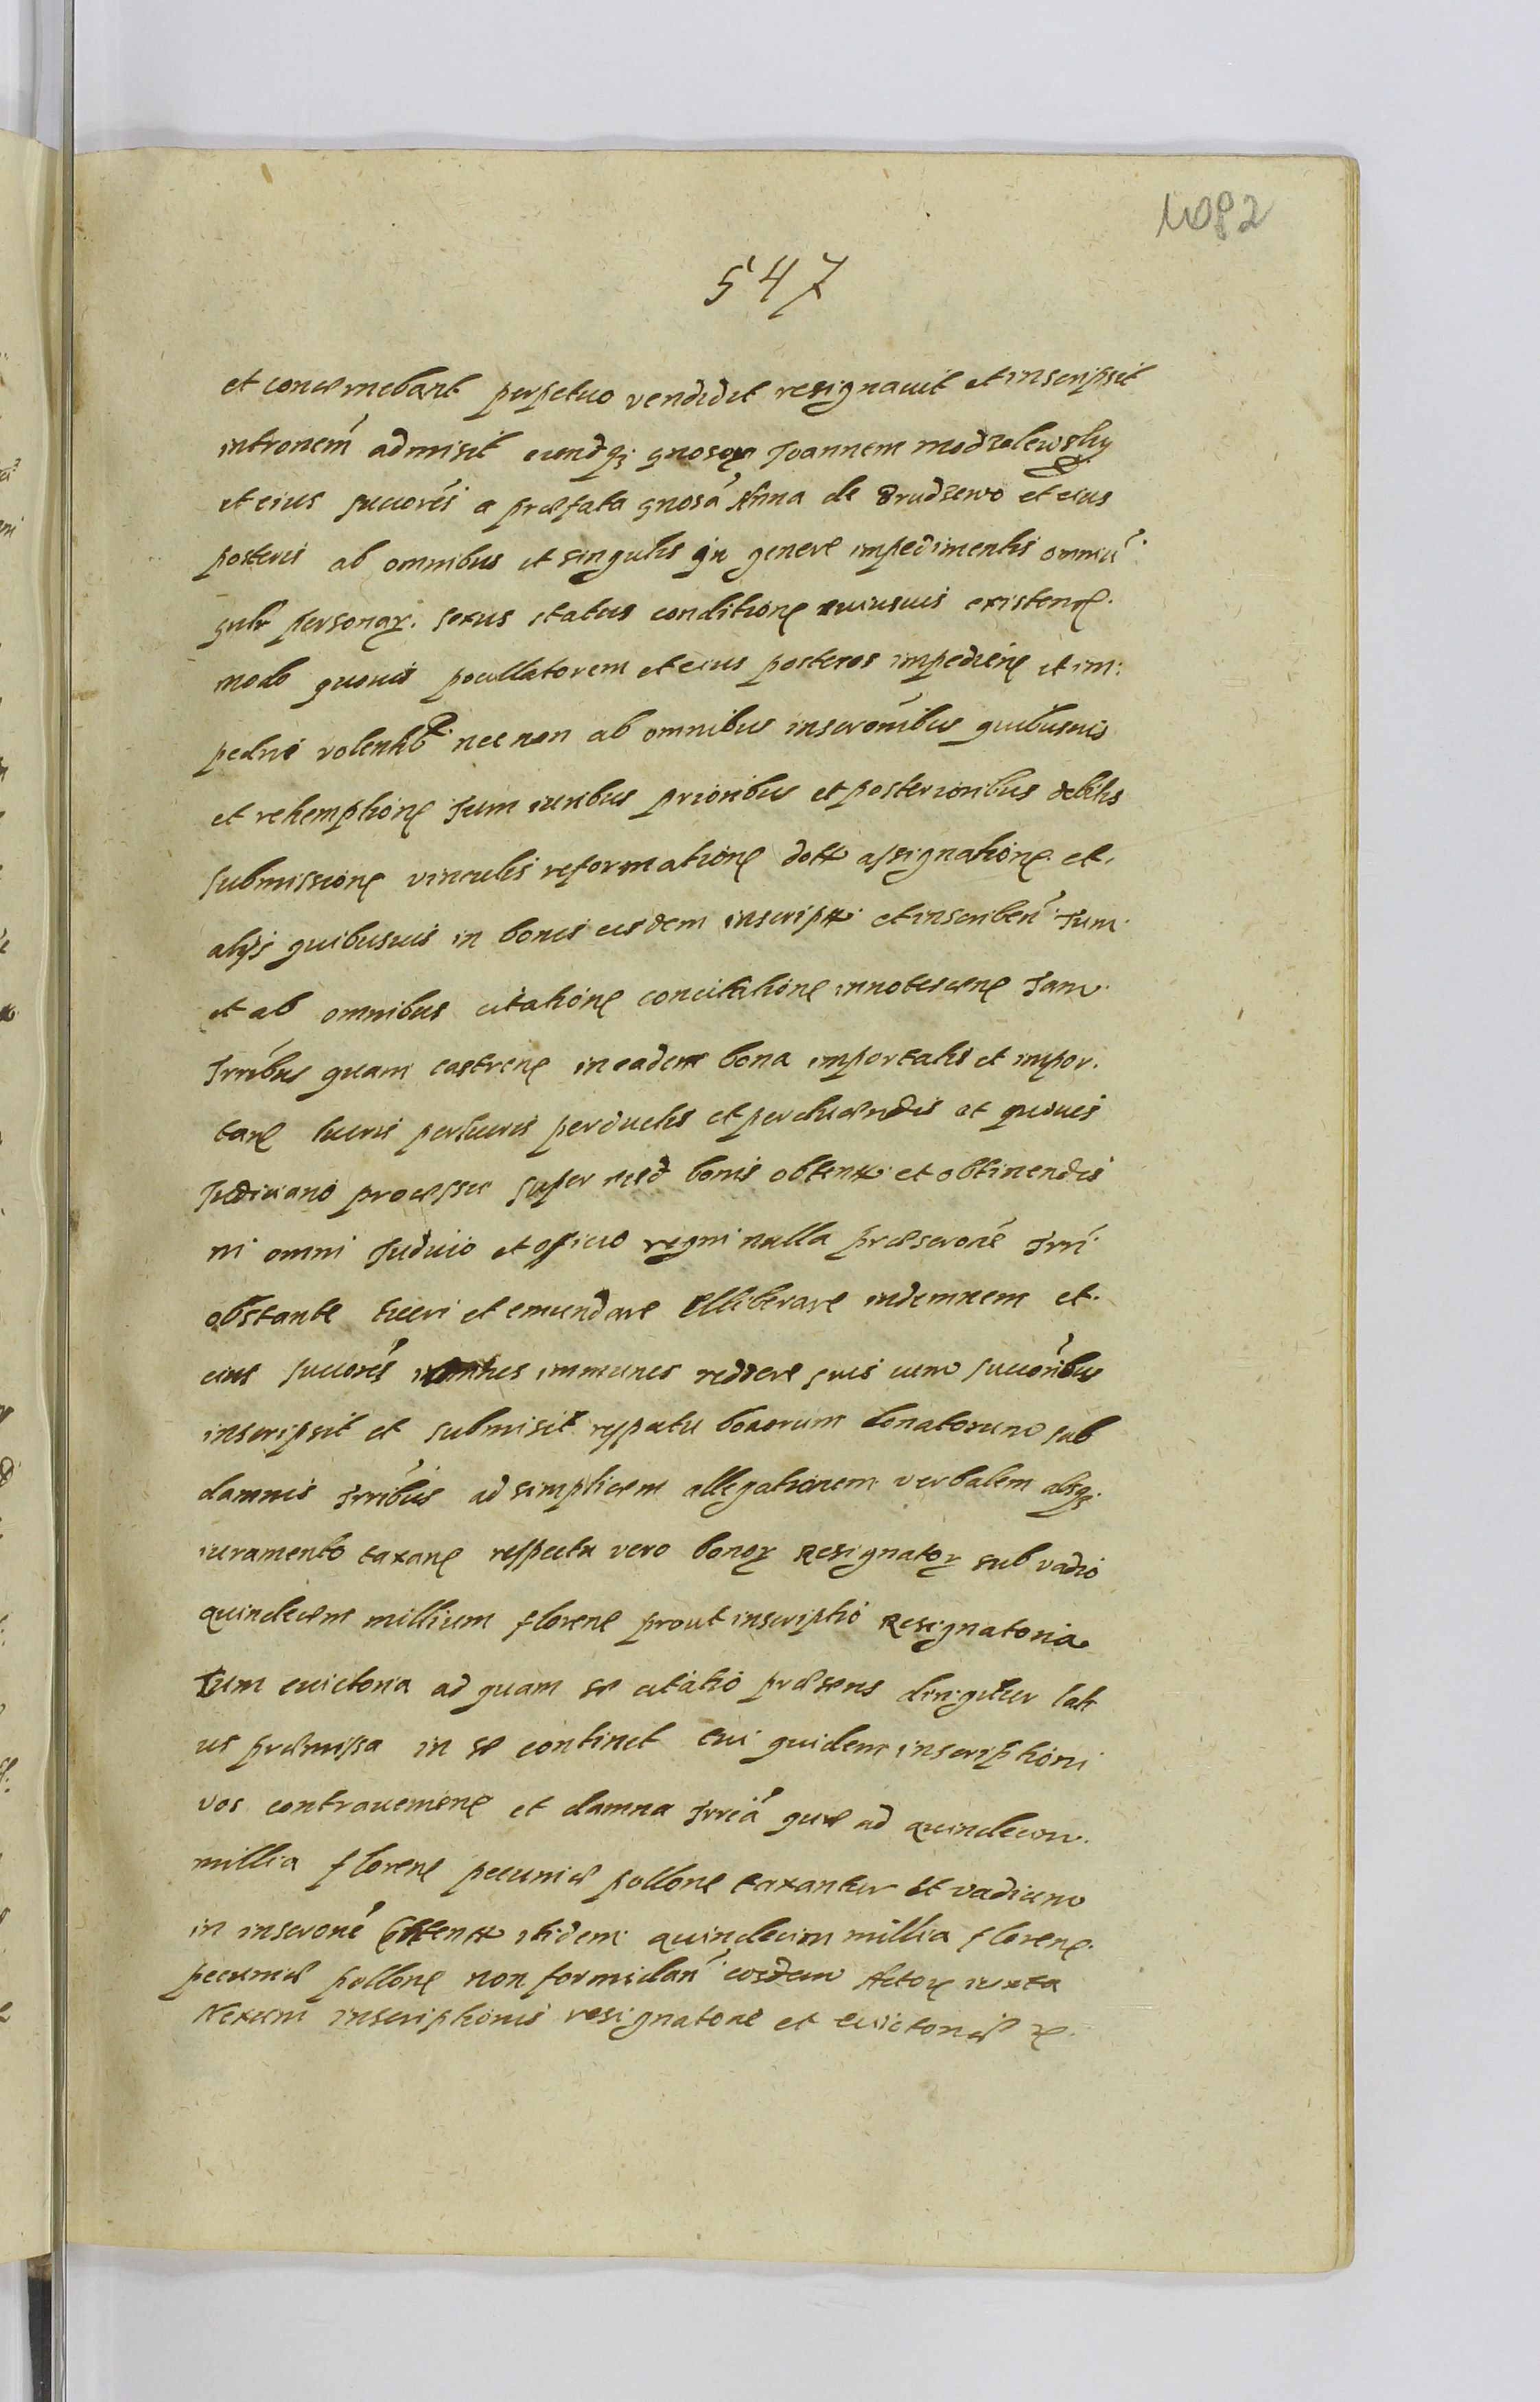 1082
547
et concernebant perpetuo vendidit resignavit et inscripsit
intronem admisit eundq; gnosum Joannem Modzalewsky
et eius succores a præfata gnosa Anna de Brudzewo et eius
posteris ab omnibus et singulis in genere impedimentis omniu
qulr personar. sexus status conditione cuiusvis existen.
modo quovis pocullatorem et eius posteros impedien et im:
pedire volentib nec non ab omnibus inscronibus quibusvis
et rehemptione Tum iuribus prioribus et posterioribus debitis
submissione vinculis reformatione dott assignatione et.
alijs quibusvis in bonis eisdem inscript et inscriben Tum
et ab omnibus citatione concitatione innotescene Tam
Trribus quam castren in eadem bona importatis et impor.
tan lucris perlucris perductis et perducendis et quovis
Judiciario processu super eisd bonis obtent et obtinendis
in omni Judicio et officio regni nulla præscrone Trri
obstante tueri et emundare elliberare indemnem et.
eius succores immunes reddere suis cum succoribus
inscripsit et submisit respectu bonorum donatorum sub
damnis Trribus ad simplicem allegationem verbalem absq;
iuramento taxan respectu vero bonor Resignator sub vadio
quindecem millium floren prout inscriptio Resignatoria
Tum evictoria ad quam se citatio præsens dirigitur lati
us præmissa in se continet cui quidem inscriptioni
vos contravenien et damna Trria quæ ad quindecim
millia floren pecuniæ pollone taxantur et vadium
in inscrone content itidem quindecim millia floren.
pecuniæ pollon non formidan eosdem Actor iuxta
Nexum inscriptionis resignatoriæ et evictoriæ